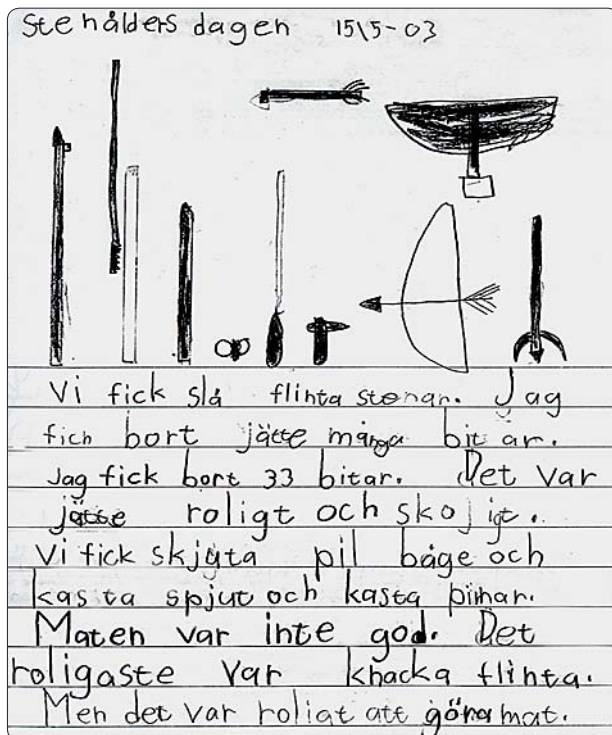 Stenålders dagen 15\5-03
Vi fick slå flinta stenar. Jag
fick bort jätte många bit ar.
Jag fick bort 33 bitar. Det var
jätte roligt och skojigt.
Vi fick skjuta pil båge och
kasta spjut och kasta pinnar.
Maten var inte god. Det
roligaste var knacka flinta.
Men det var roligt att göra mat.